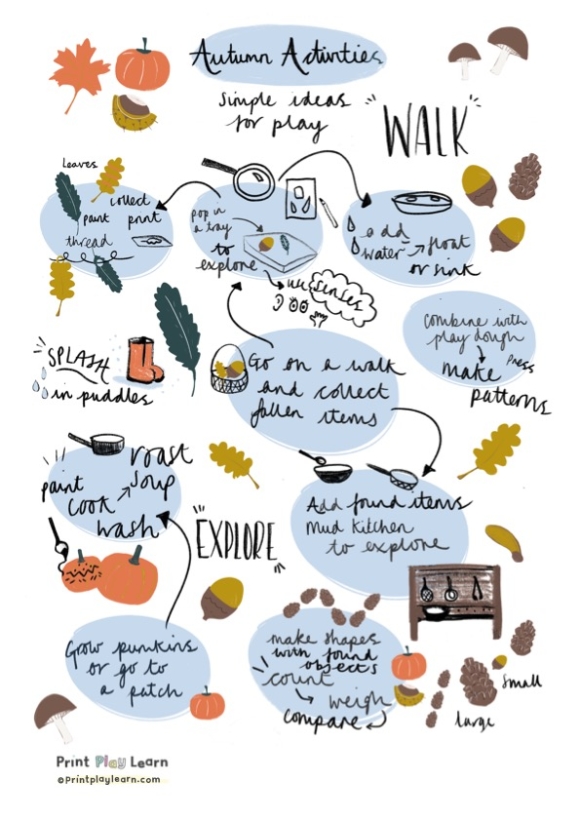 Autumn Activities
simple ideas
for play
"WALK"
leaves
collect
paint print
thread
pop in
a tray
to
explore
add
water → float
or sink
use senses
Combine with
play dough
make press
patterns
SPLASH
in puddles
Go on a walk
and collect
fallen items
roast
paint soup
cook
wash
"EXPLORE"
Add found items
Mud kitchen
to explore
Grow pumkins
or go to
a patch
make shapes
with found
objects
count
weigh
compare
small
large
Print Play Learn
©Printplaylearn.com